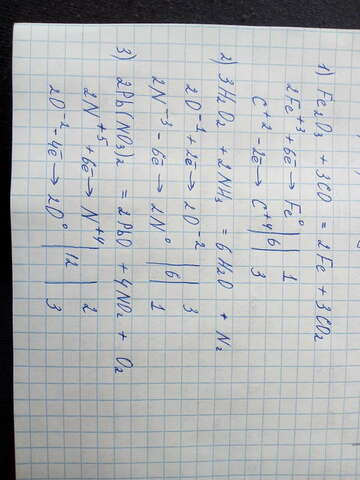 1) Fe₂O₃ + 3CO = 2Fe + 3CO₂
2Fe⁺³ + 6e̅ → Fe⁰ | 6 | 1
C⁺² - 2e̅ → C⁺⁴ | | 3
2) 3H₂O₂ + 2NH₃ = 6H₂O + N₂
2O⁻¹ + 2e̅ → 2O⁻² | | 3
2N⁻³ - 6e̅ → 2N⁰ | 6 | 1
3) 2Pb(NO₃)₂ = 2PbO + 4NO₂ + O₂
2N⁺⁵ + 6e̅ → N⁺⁴ | | 2
2O⁻² - 4e̅ → 2O⁰ | 12 | 3